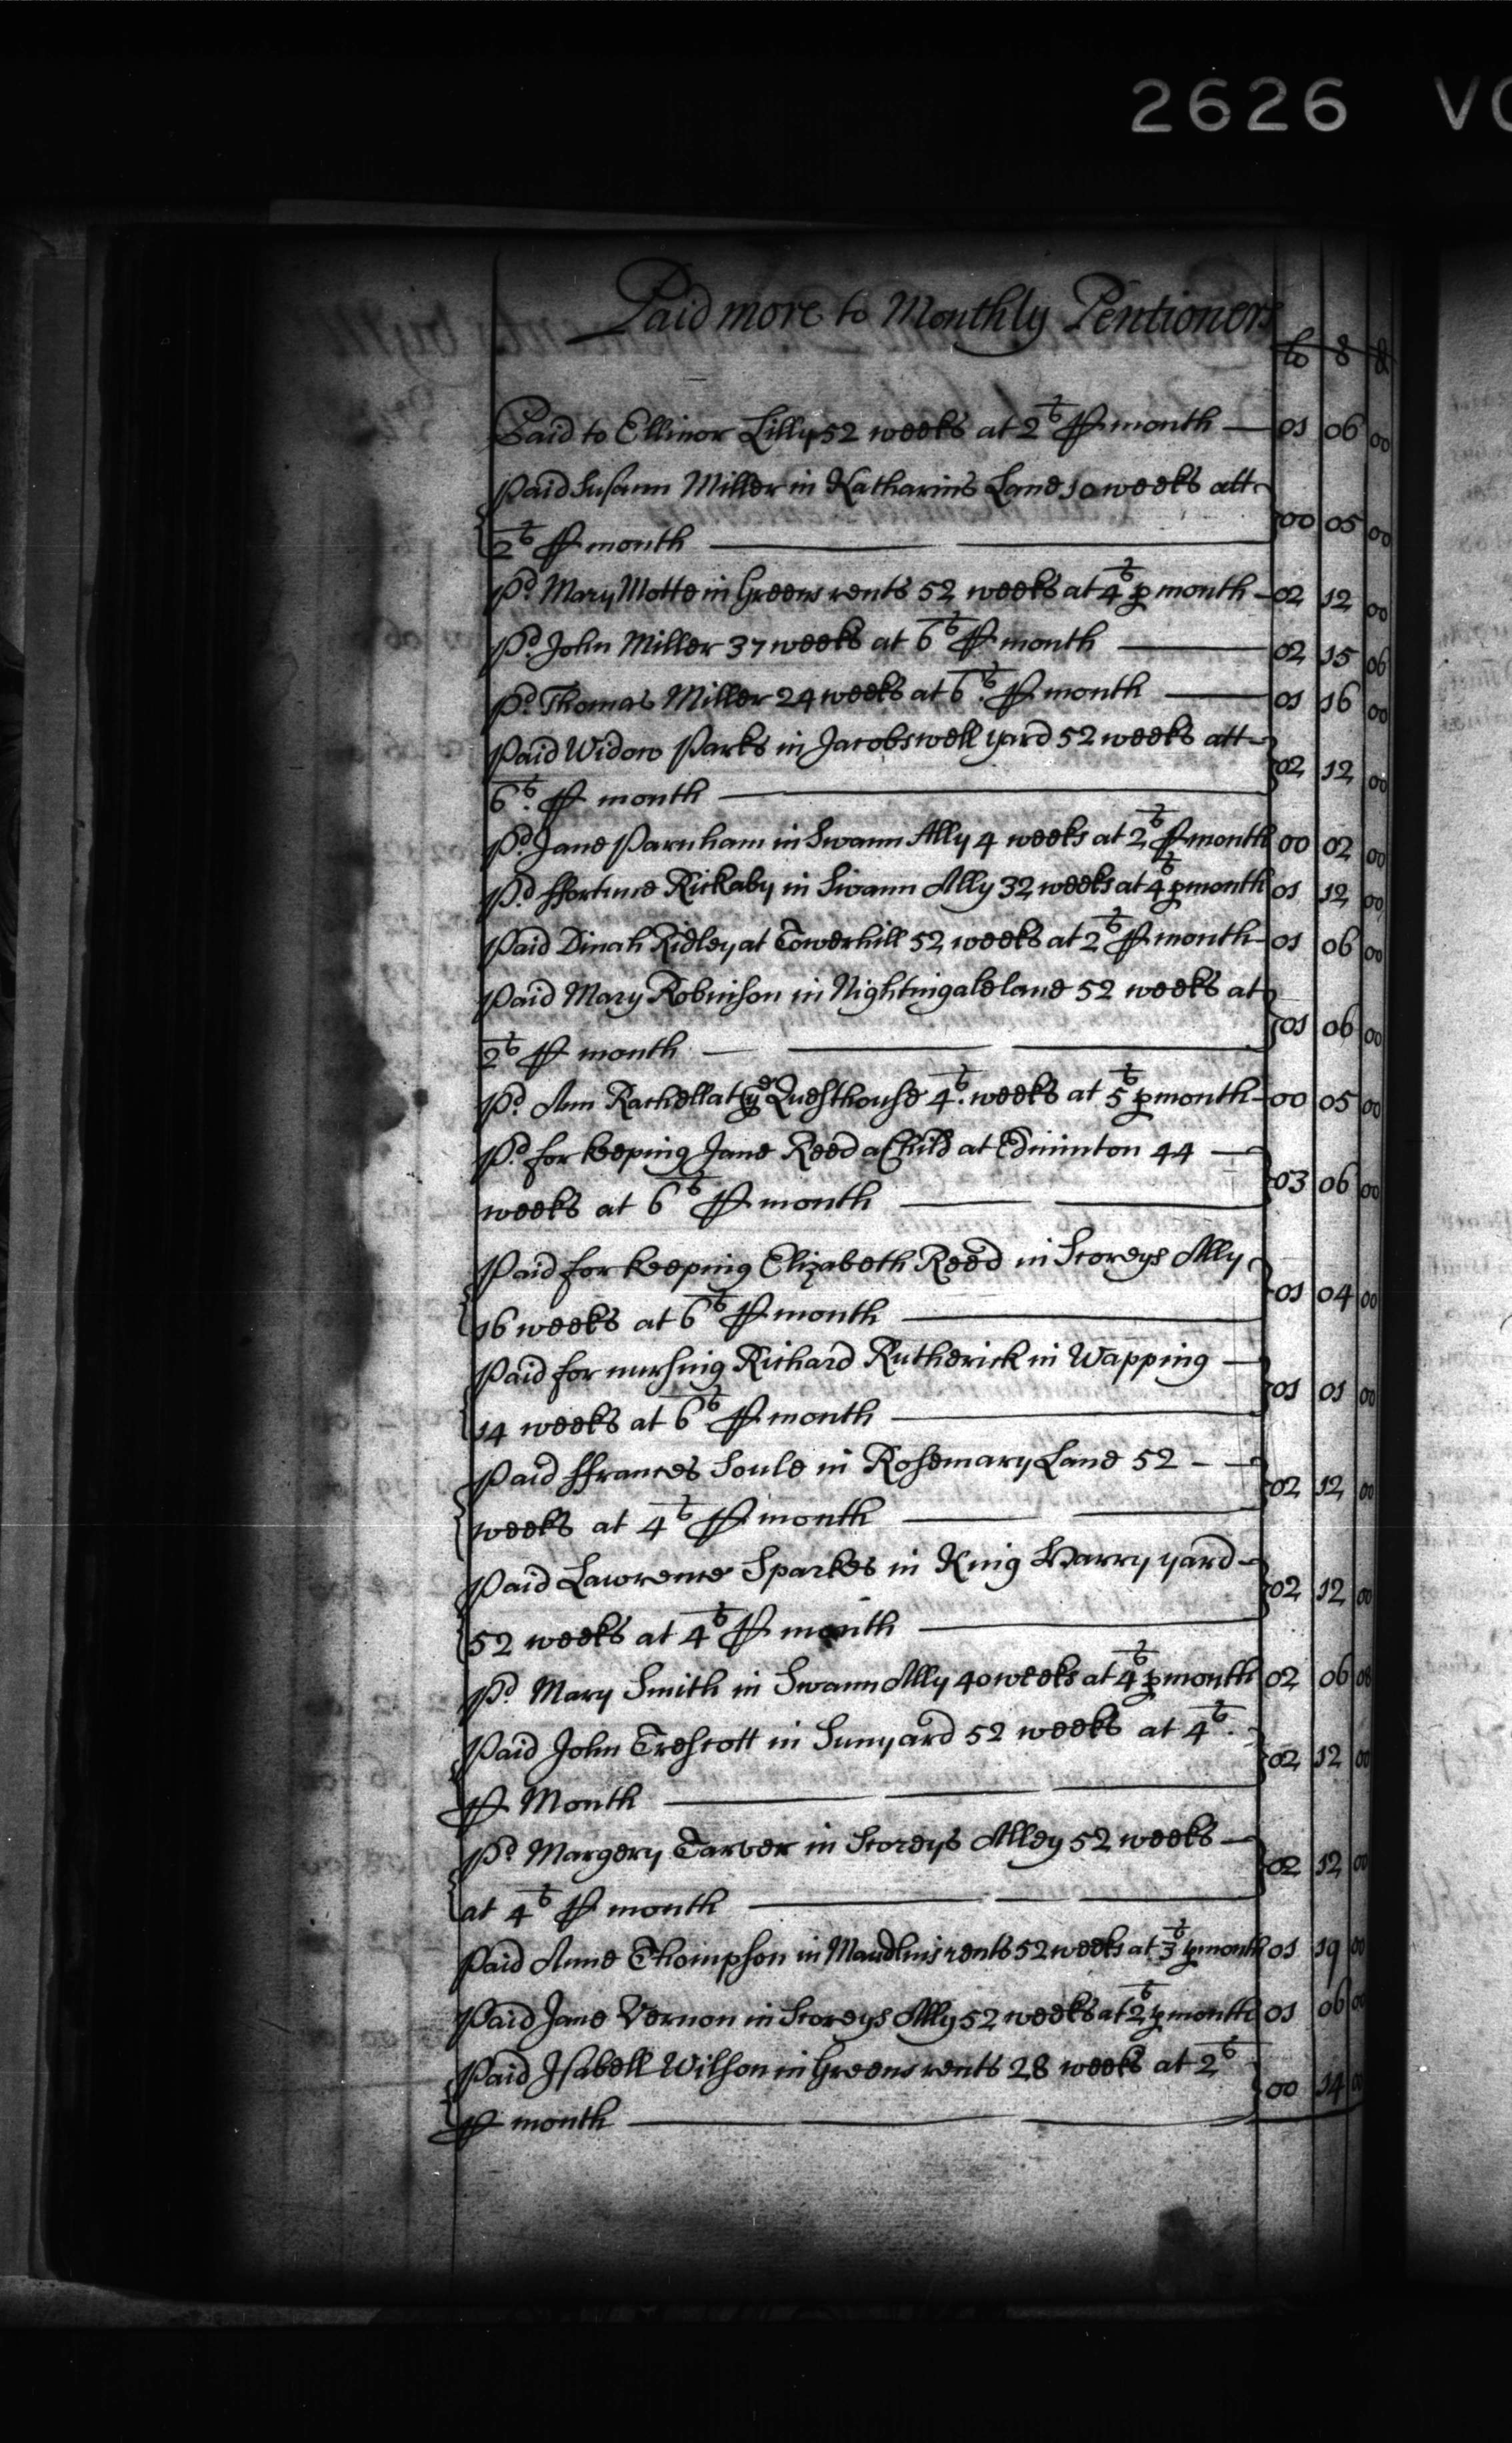 2626 VO
Paid more to Monthly Pentioners
lb s d
Paid to Ellinor Lilly 52 weeks at 2s ꝑ month 01 06 00
Paid Susann Miller in Katharins Lane 10 weeks att
2s ꝑ month 00 05 00
Pd Mary Motte in Greens rents 52 weeks at 4s ꝑ month 02 12 00
Pd John Miller 37 weeks at 6s ꝑ month 02 15 06
Pd Thomas Miller 24 weeks at 6s ꝑ month 01 16 00
Paid Widow Parks in Jacobswell yard 52 weeks att
6s ꝑ month 02 12 00
Pd Jane Parnham in Swann Ally 4 weeks at 2s ꝑ month 00 02 00
Pd ffortune Rickaby in Swann Ally 32 weeks at 4s ꝑ month 01 12 00
Paid Dinah Ridley at Towerhill 52 weeks at 2s ꝑ month 01 06 00
Paid Mary Robinson in Nightingale lane 52 weeks at
2s ꝑ month 01 06 00
Pd Ann Rachell at ye Questhouse 4 weeks at 5s ꝑ month 00 05 00
Pd for keeping Jane Reed a Child at Edminton 44
weeks at 6s ꝑ month 03 06 00
Paid for keeping Elizabeth Reed in Storeys Ally
16 weeks at 6s ꝑ month 01 04 00
Paid for nursing Richard Rutherick in Wapping
14 weeks at 6s ꝑ month 01 01 00
Paid ffrances Soule in Rosemary Lane 52
weeks at 4s ꝑ month 02 12 00
Paid Lawrence Sparkes in King Harry yard
52 weeks at 4s ꝑ month 02 12 00
Pd Mary Smith in Swann Ally 40 weeks at 4s ꝑ month 02 06 08
Paid John Trescott in Sunyard 52 weeks at 4s
ꝑ Month 02 12 00
Pd Margery Tarver in Storeys Alley 52 weeks
at 4s ꝑ month 02 12 00
Paid Anne Thompson in Maudlins rents 52 weeks at 3s ꝑ month 01 19 00
Paid Jane Vernon in Storeys Ally 52 weeks at 2s ꝑ month 01 06 00
Paid Isabell Wilson in Greens rents 28 weeks at 2s
ꝑ month 00 14 00